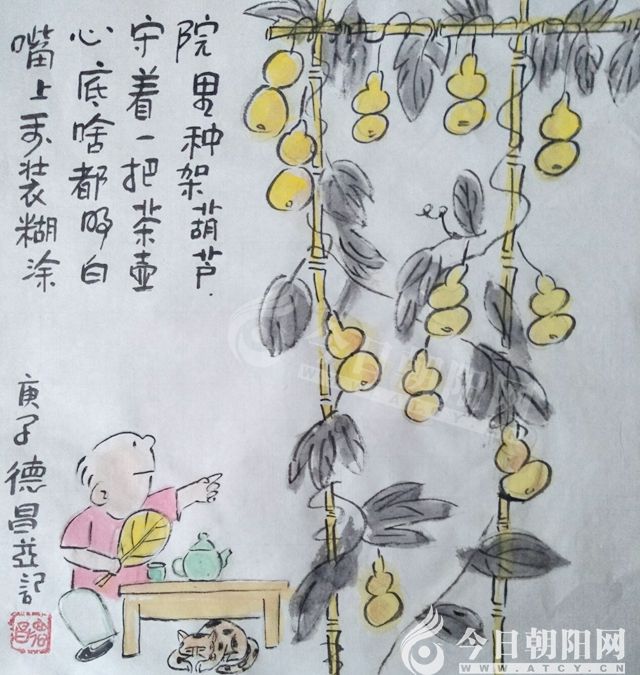 院里种架葫芦
守着一把茶壶
心底啥都明白
嘴上装糊涂
庚子德昌并记
今日朝阳网
WWW.ATCY.CN
今日朝阳网
WWW.ATCY.CN